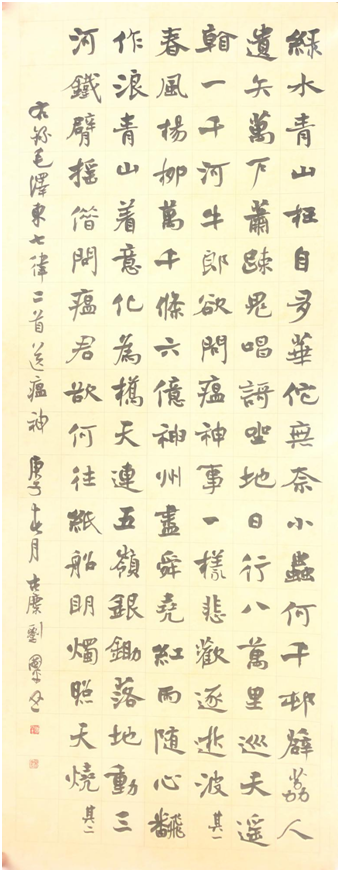 綠水青山枉自多華佗無奈小蟲何千邨薜荔人
遺矢萬戶蕭疎鬼唱謌坐地日行八萬里巡天遙
看一千河牛郎欲問瘟神事一樣悲歡逐逝波 其一
春風楊柳萬千條六億神州盡舜堯紅雨隨心翻
作浪青山着意化為橋天連五嶺銀鋤落地動三
河鐵臂搖借問瘟君欲何往紙船明燭照天燒 其二
右錄毛澤東七律二首送瘟神 庚子 月 劉